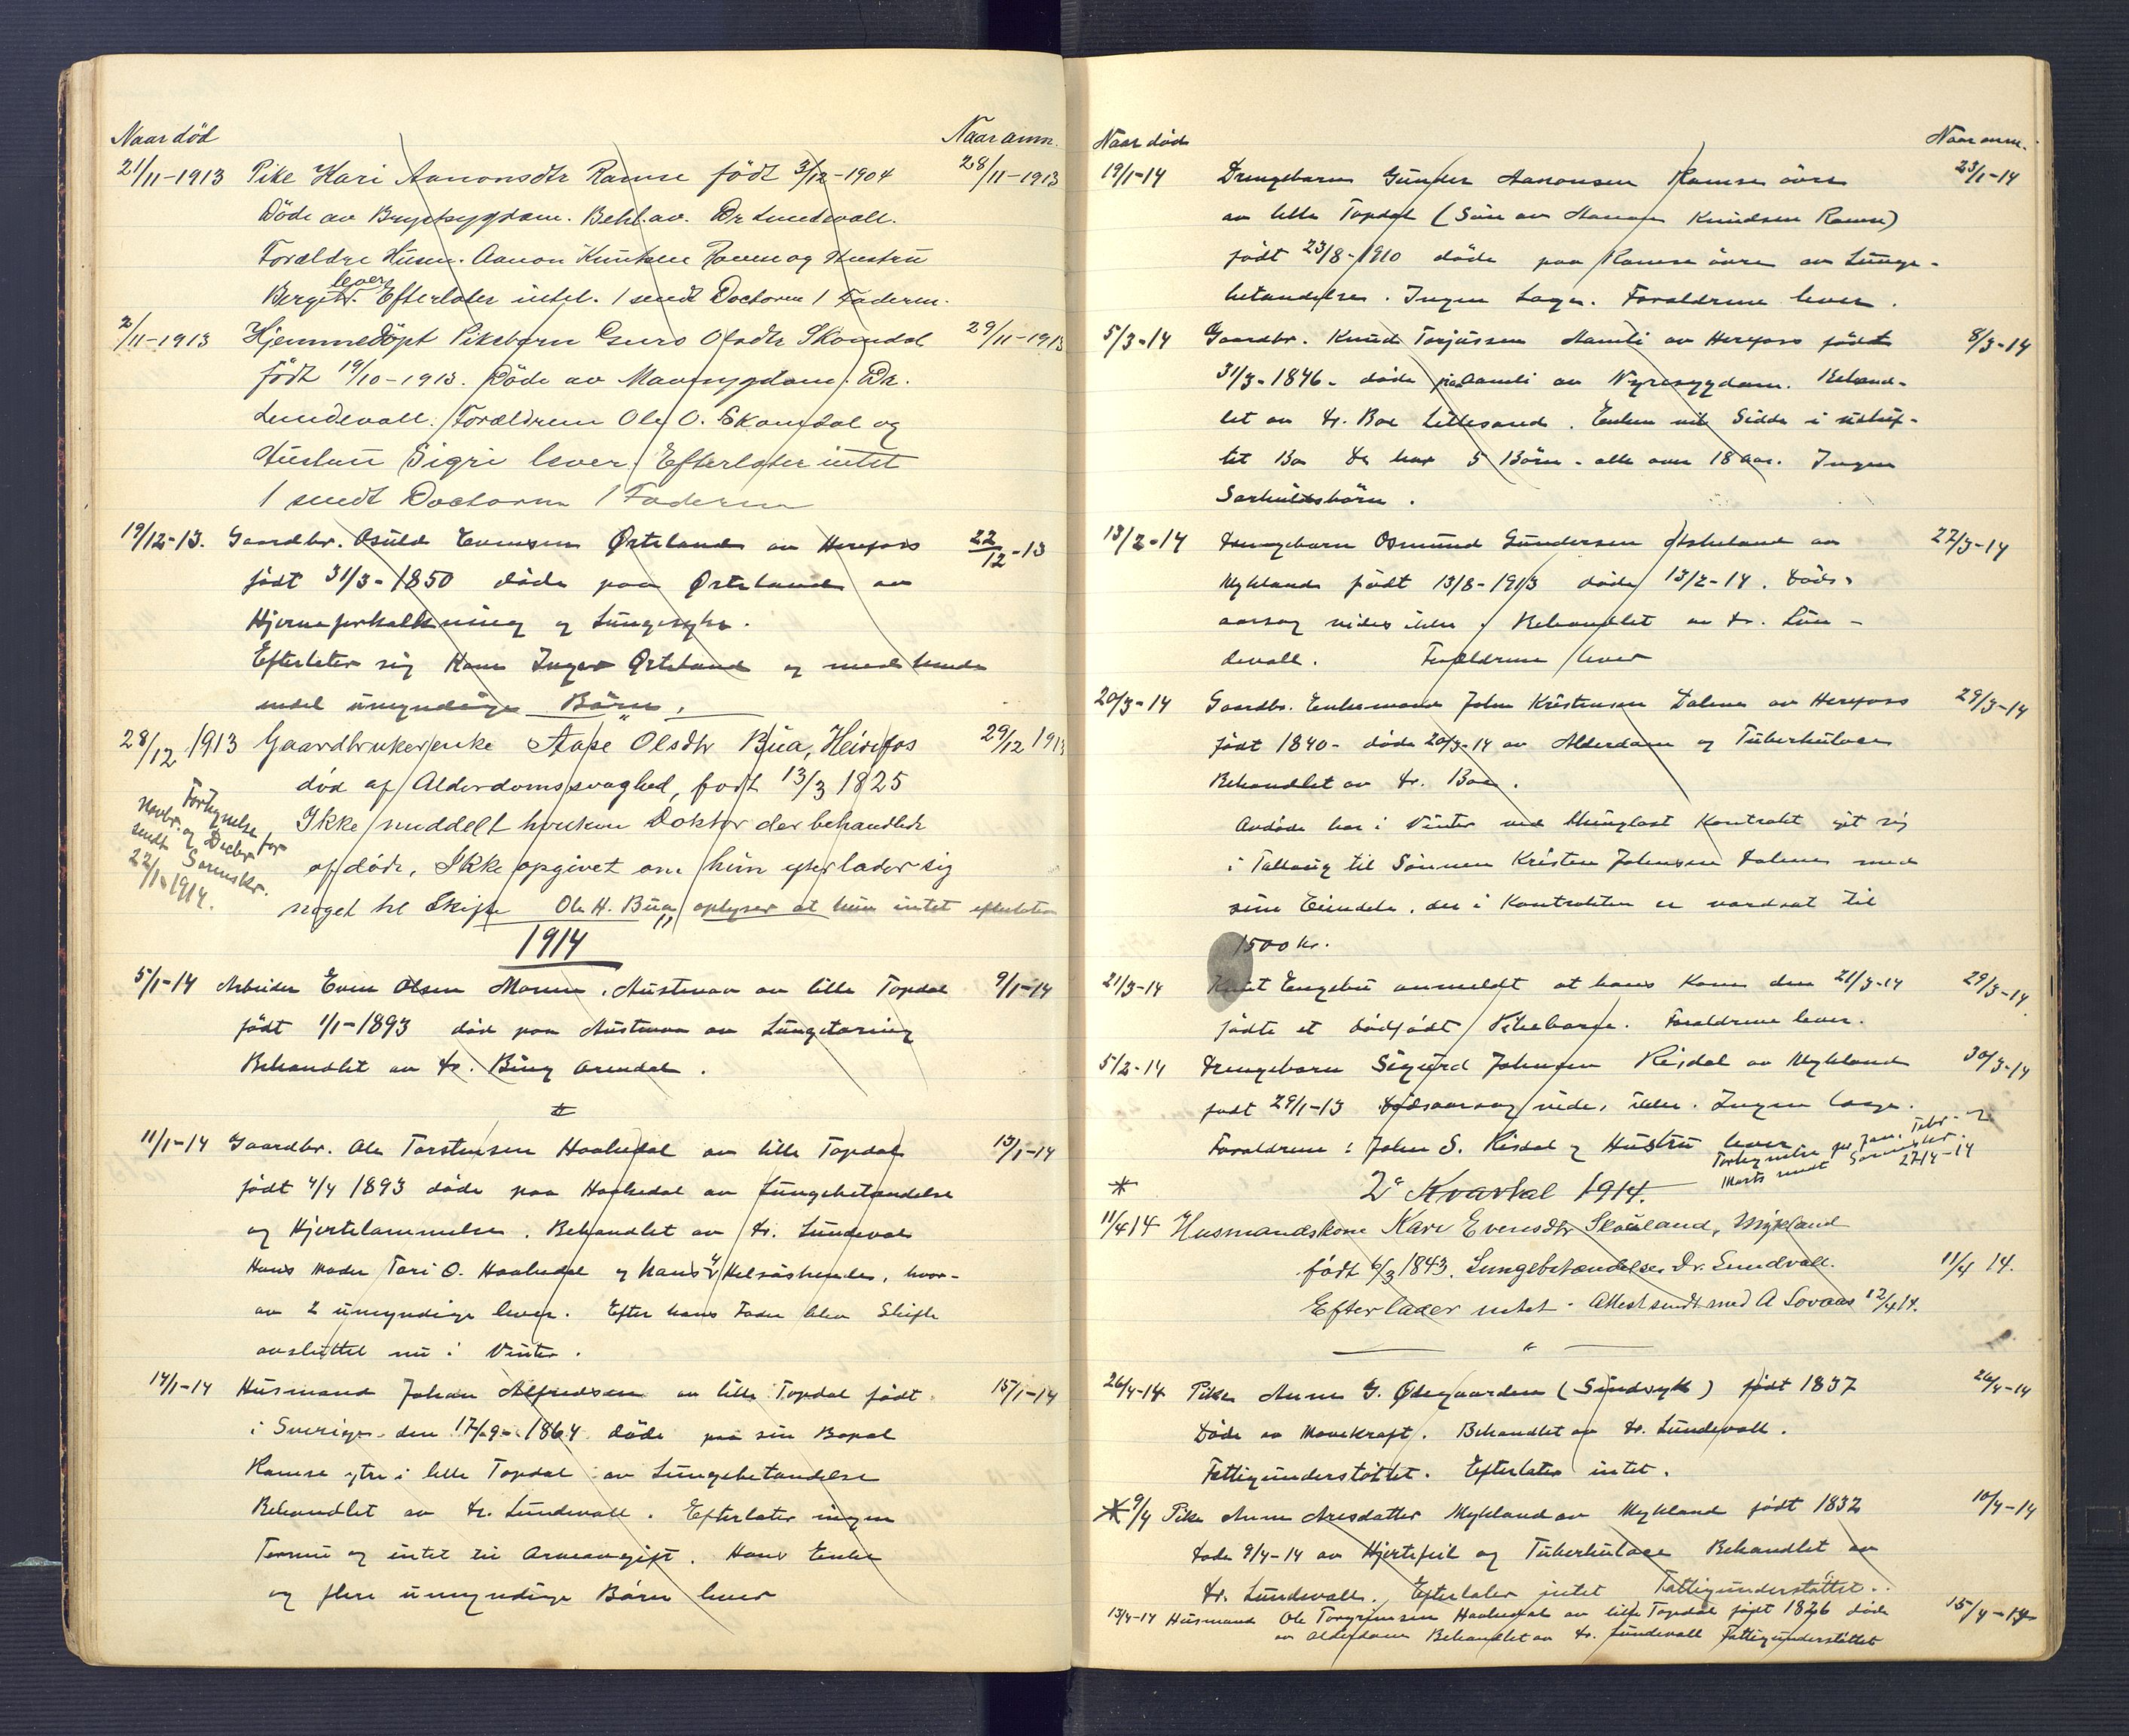 Naar död Naar anm.
21/11-1913 Pike Kari Aanonsdtr Ramse födt 3/12-1904 28/11-1913
Döde av Brystsygdom. Behl. av. Dr Lundevall.
Forældre Husm. Aanon Knutsen Ramse og Hustru
lever
Bergit. Efterlater intet. 1 sendt Doctoren 1 Faderen.
2/11-1913 Hjemmedöpt Pikebarn Guro Olsdtr Skomdal 29/11-1913
födt 19/10-1913. Döde av Mavesygdom. Dr.
Lundevall. Forældrene Ole O. Skomdal og
Hustru Sigri lever. Efterlater intet
1 sendt Doctoren 1 Faderen
19/12-13. Gaardbr. Osuld Evensen Örteland av Herefoss 22/12-13
födt 31/3-1850 döde paa Örteland av
Hjerneforkalkning og Lungesyke.
Efterlater sig Kone Inger Örteland og med hende
endel umyndige Börn.
28/12 1913 Gaardbrukerenke Aase Olsdtr Bua, Heirefos 29/12 1913
död af Alderdomssvaghed, født 13/3 1825
Ikke meddelt hvilken Doktor der behandlede
afdöde, Ikke opgivet om hun efterlader sig
noget til Skifte Ole H. Bua oplyser at hun intet efterlater
Fortegnelse for
Novbr. og Decbr
sendt Sorenskr.
22/1-1914.
1914
5/1-14 Arbeider Even Olsen Moren, Austenaa av lille Topdal 9/1-14
födt 1/1-1893 död paa Austenaa av Lungetæring
Behandlet av Dr. Bing Arendal.
11/1-14 Gaardbr. Ole Torstensen Haakedal av lille Topdal 13/1-14
födt 4/4 1893 döde paa Haakedal av Lungebetændelse
og Hjertelammelse. Behandlet av Dr. Lundevall
Hans Moder Tori O. Haakedal og hans 4 Helsöskende, hvor-
av 2 umyndige lever. Efter hans Fader blev Skifte
avsluttet nu i Vinter.
14/1-14 Husmand Johan Alfredsen av lille Topdal födt 15/1-14
i Sverige den 17/9-1864 döde paa sin Bopæl
Ramse ytre i lille Topdal av Lungebetændelse
Behandlet av Dr. Lundevall. Efterlater ingen
Formue og intet til Arveavgift. Hans Enke
og flere umyndige Börn lever
Naar död Naar anm.
19/1-14 Drengebarn Gunder Aanonsen Ramse övre 23/1-14
av lille Topdal (Sön av Aanon Knudsen Ramse)
födt 23/8-1910 döde paa Ramse övre av Lunge-
betændelse. Ingen Læge. Forældrene lever.
5/3-14 Gaardbr. Knud Torjussen Hamli av Herefoss födt 8/3-14
31/3-1846- döde paa Hamli av Nyresygdom. Behand-
let av Dr. Boe Lillesand. Enken vil Sidde i uskif-
tet Bo De har 5 Börn - alle over 18 aar. Ingen
Særkuldsbörn.
13/2-14 Drengebarn Osmund Gundersen Askeland av 27/3-14
Mykland födt 13/8-1913 döde 13/2-14. Döds-
aarsag vides ikke. Behandlet av Dr. Lun-
devall. Forældrene lever
20/3-14 Gaardbr. Enkemand John Kristensen Dalene av Herefoss 29/3-14
födt 1840- döde 20/3-14 av Alderdom og Tuberkulose
Behandlet av Dr. Boe.
Avdöde har i Vinter ved thinglæst Kontrakt git sig
i Tællaug til Sönnen Kristen Johnsen Dalene med
sine Eiendele, der i Kontrakten er værdsat til
1500 kr.
21/3-14 Knut Engebu anmeldt at hans Kone den 21/3-14 29/3-14
födte et dödfödt Pikebarn. Forældrene lever.
5/2-14 Drengebarn Sigurd Johnsen Risdal av Mykland 30/3-14
födt 29/1-13 Dödsaarsag vides ikke. Ingen Læge.
Forældrene: John S. Risdal og Hustru lever
Fortegnelse for Jan. Febr. og
Marts sendt Sorenskr. 27/4-14
* 2det Kvartal 1914.
11/4 14 Husmandskone Kari Evensdtr Skouland, Mykland
født 6/3 1843. Lungebetændelse. Dr. Lundvall. 11/4 14.
Efterlader intet. Attest sendt med A Lovaas 12/4 14.
26/4-14 Pike Anne G. Ödegaarden (Sundsyk) födt 1837 26/4-14
Döde av Mavekræft. Behandlet av Dr. Lundevall.
Fattigunderstöttet. Efterlater intet.
* 9/4 Pike Anne Aresdatter Mykland av Mykland födt 1832 10/4-14
Döde 9/4-14 av Hjertefeil og Tuberkulose Behandlet av
Dr. Lundevall. Efterlater intet Fattigunderstöttet.
13/4-14 Husmand Ole Torgrimsen Haakedal av lille Topdal födt 1826 döde 15/4-14
av Alderdom Behandlet av Dr. Lundevall Fattigunderstöttet